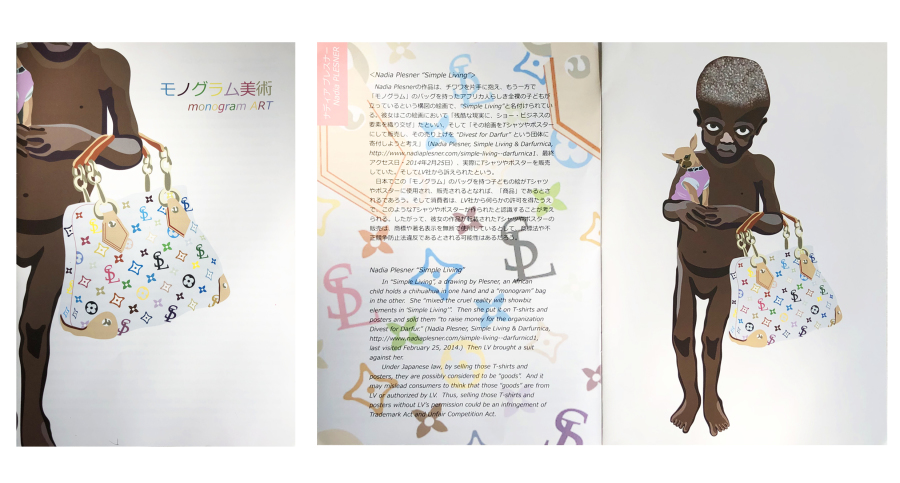 モノグラム美術
monogram ART
ナディア・プレスナー
Nadia PLESNER
<Nadia Plesner “Simple Living”>
Nadia Plesnerの作品は、チワワを片手に抱え、もう一方で
「モノグラム」のバッグを持ったアフリカ人らしき全裸の子どもが
立っているという構図の絵画で、“Simple Living”と名付けられてい
る。彼女はこの絵画において「残酷な現実に、ショー・ビジネスの
要素を織り交ぜ」たといい、そして「その絵画をTシャツやポスター
にして販売し、その売り上げを “Divest for Darfur” という団体に
寄付しようと考え」（Nadia Plesner, Simple Living & Darfurnica,
http://www.nadiaplesner.com/simple-living--darfurnica1、最終
アクセス日・2014年2月25日）、実際にTシャツやポスターを販売
していた。そしてLV社から訴えられたという。
日本でこの「モノグラム」のバッグを持つ子どもの絵がTシャツ
やポスターに使用され、販売されるとなれば、「商品」であるとさ
れるであろう。そして消費者は、LV社から何らかの許可を得たうえ
で、このようなTシャツやポスターが作られたと認識することが考え
られる。したがって、彼女の作品が転載されたTシャツやポスターの
販売は、商標や著名表示を無断で使用しているとして、商標法や不
正競争防止法違反であるとされる可能性はあるだろう。
Nadia Plesner “Simple Living”
In “Simple Living”, a drawing by Plesner, an African
child holds a chihuahua in one hand and a “monogram” bag
in the other. She “mixed the cruel reality with showbiz
elements in ‘Simple Living’”. Then she put it on T-shirts and
posters and sold them “to raise money for the organization
Divest for Darfur.” (Nadia Plesner, Simple Living & Darfurnica,
http://www.nadiaplesner.com/simple-living--darfurnica1,
last visited February 25, 2014.) Then LV brought a suit
against her.
Under Japanese law, by selling those T-shirts and
posters, they are possibly considered to be “goods”. And it
may mislead consumers to think that those “goods” are from
LV or authorized by LV. Thus, selling those T-shirts and
posters without LV’s permission could be an infringement of
Trademark Act and Unfair Competition Act.